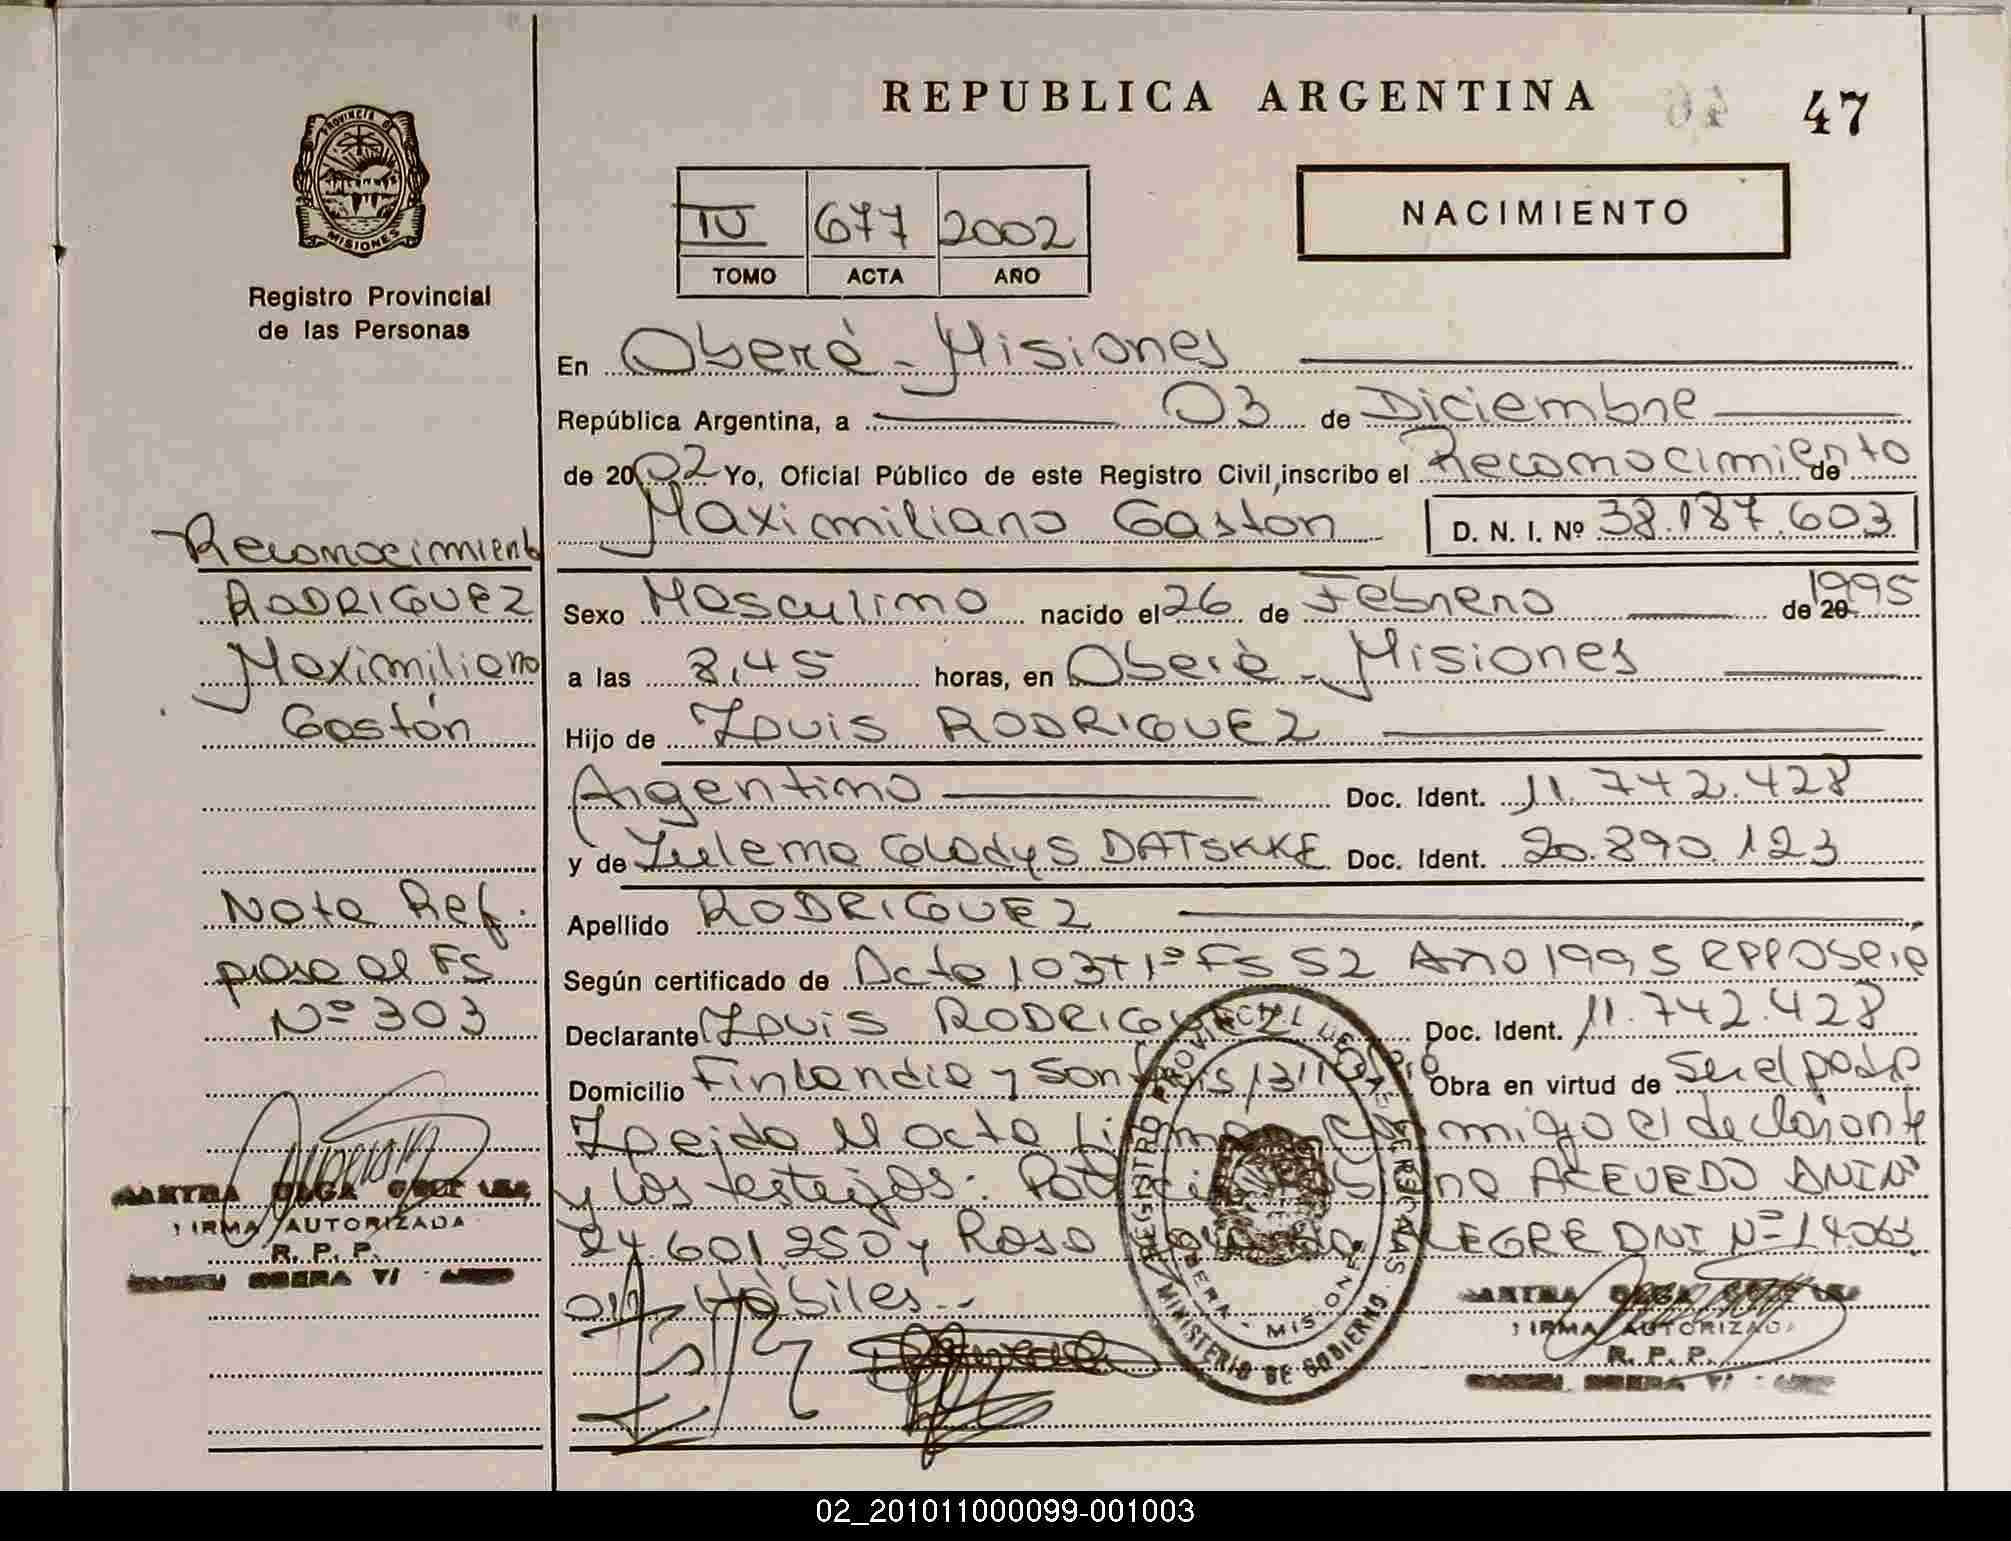 REPUBLICA ARGENTINA
47
PROVINCIA DE
MISIONES
Registro Provincial
de las Personas
IV 677 2002
TOMO ACTA AÑO
NACIMIENTO
En Oberá - Misiones
República Argentina, a 03 de Diciembre
de 2002 Yo, Oficial Público de este Registro Civil, inscribo el Reconocimiento de
Maximiliano Gaston D. N. I. Nº 38.187.603
Sexo Masculino nacido el 26 de Febrero de 20 1995
a las 8,45 horas, en Oberá - Misiones
Hijo de Louis RODRIGUEZ
Argentino Doc. Ident. 11.742.428
y de Zulema Gladys DATSKKE Doc. Ident. 20.890.123
Apellido RODRIGUEZ
Según certificado de Acta 1037 1º FS 52 Año 1995 RPP Oberá
Declarante Louis RODRIGUEZ Doc. Ident. 11.742.428
Domicilio Finlandia y San Obra en virtud de ser el padre
Leida el acta firma conmigo el declarante
y los testigos: ACEVEDO DNI Nº
24.601.250 y Rosa ALEGRE DNI Nº 14.063
011 Hábiles.-
Reconocimiento
RODRIGUEZ
Maximiliano
Gastón
Nota Ref.
pase al FS
Nº 303
MARTHA OLGA
FIRMA AUTORIZADA
R. P. P.
REGISTRO PROVINCIAL DE LAS PERSONAS
MINISTERIO DE GOBIERNO
OBERA - MISIONES
MARTHA OLGA
FIRMA AUTORIZADA
R. P. P.
02_201011000099-001003